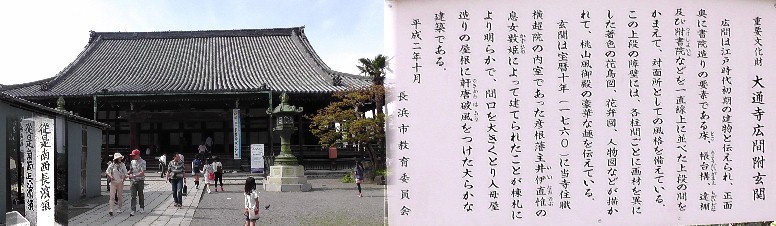 重要文化財　大通寺広間附玄関
広間は江戸時代初期の建物と伝えられ、正面
奥に書院造りの要素である床、帳台構、違棚
及び附書院などを一直線上に並べた上段の間を
かまえて、対面所としての風格を備えている。
この上段の障壁には、各柱間ごとに画材を異に
した著色の花鳥図、花卉図、人物図などが描か
れて、桃山風御殿の豪華な趣を伝えている。
玄関は宝暦十年（一七六〇）に当寺住職
横超院の内室であった彦根藩主井伊直惟の
息女数姫によって建てられたことが棟札に
より明らかで、間口を大きくとり入母屋
造りの屋根に軒唐破風をつけた大らかな
建築である。
平成二年十月
長浜市教育委員会